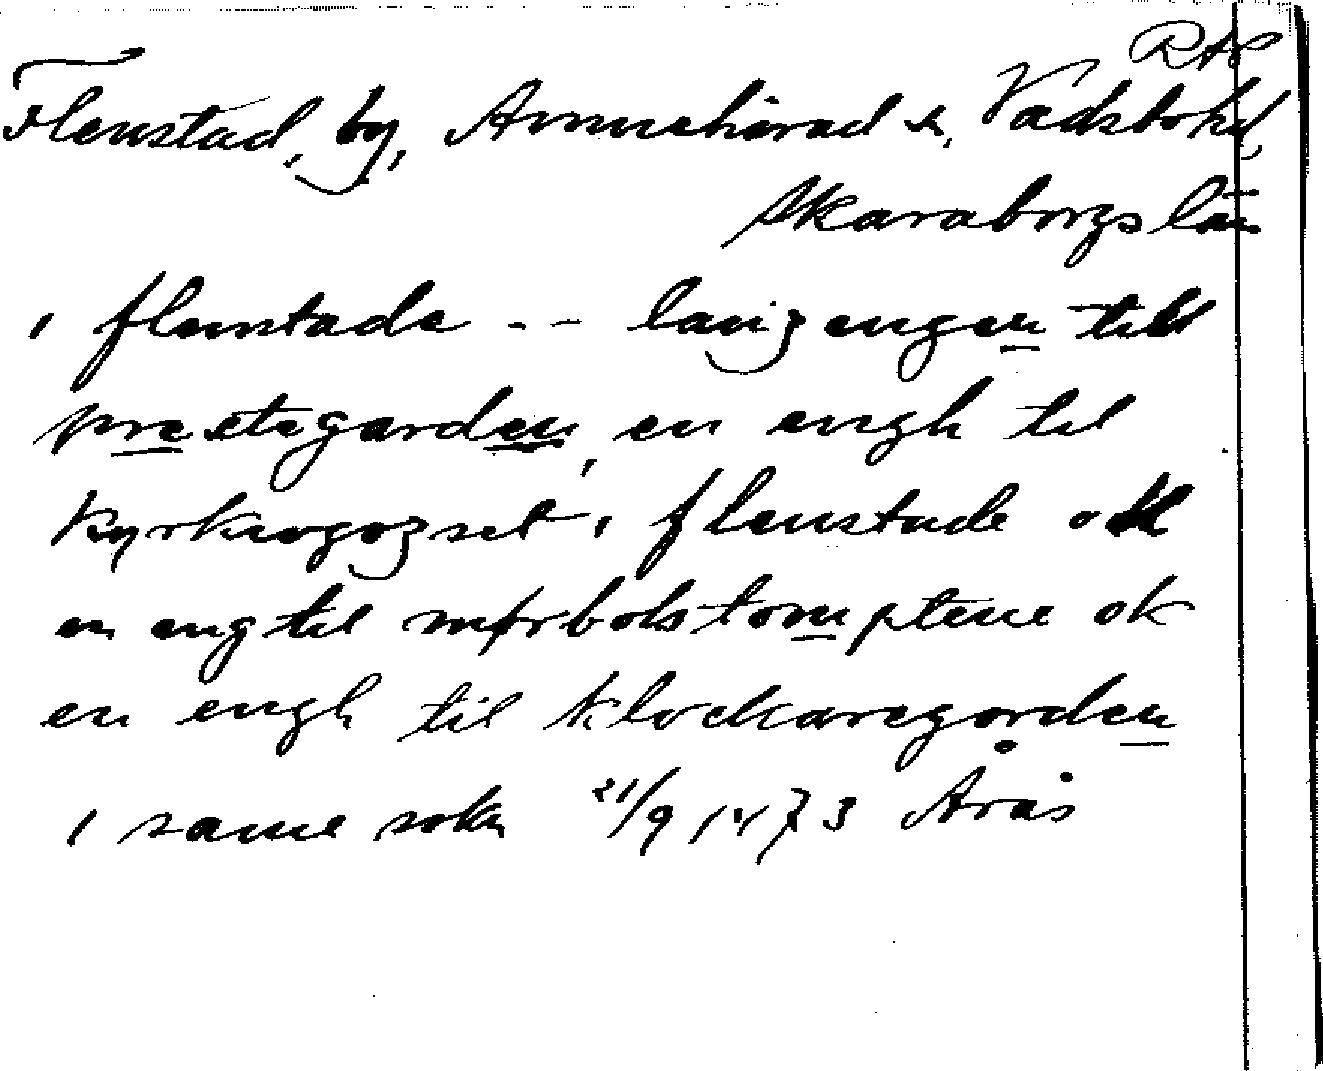 RAP
Flenstad, by, Amnehärad s., Vadsbo hd,
Skaraborgs län
i flenstade -- langengen till
prestegarden, en engh til
kyrkiogozset i flenstade ok
en eng til mørbolstomptene ok
en engh til klockaregorden
i same sokn 21/9 1473 Årås